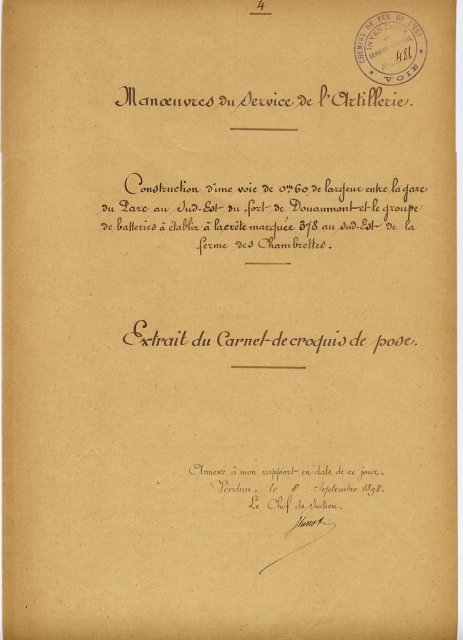 4
CHEMINS DE FER DE L'EST
INVENTAIRE
481
VOIE
Manœuvres du Service de l'Artillerie.
Construction d'une voie de 0m,60 de largeur entre la gare
du Parc au Sud-Est du fort de Douaumont et le groupe
de batteries à établir à la crête marquée 378 au Sud-Est de la
ferme des Chambrettes.
Extrait du Carnet de croquis de pose.
Annexe à mon rapport en date de ce jour.
Verdun, le 8 Septembre 1898.
Le Chef de Section.